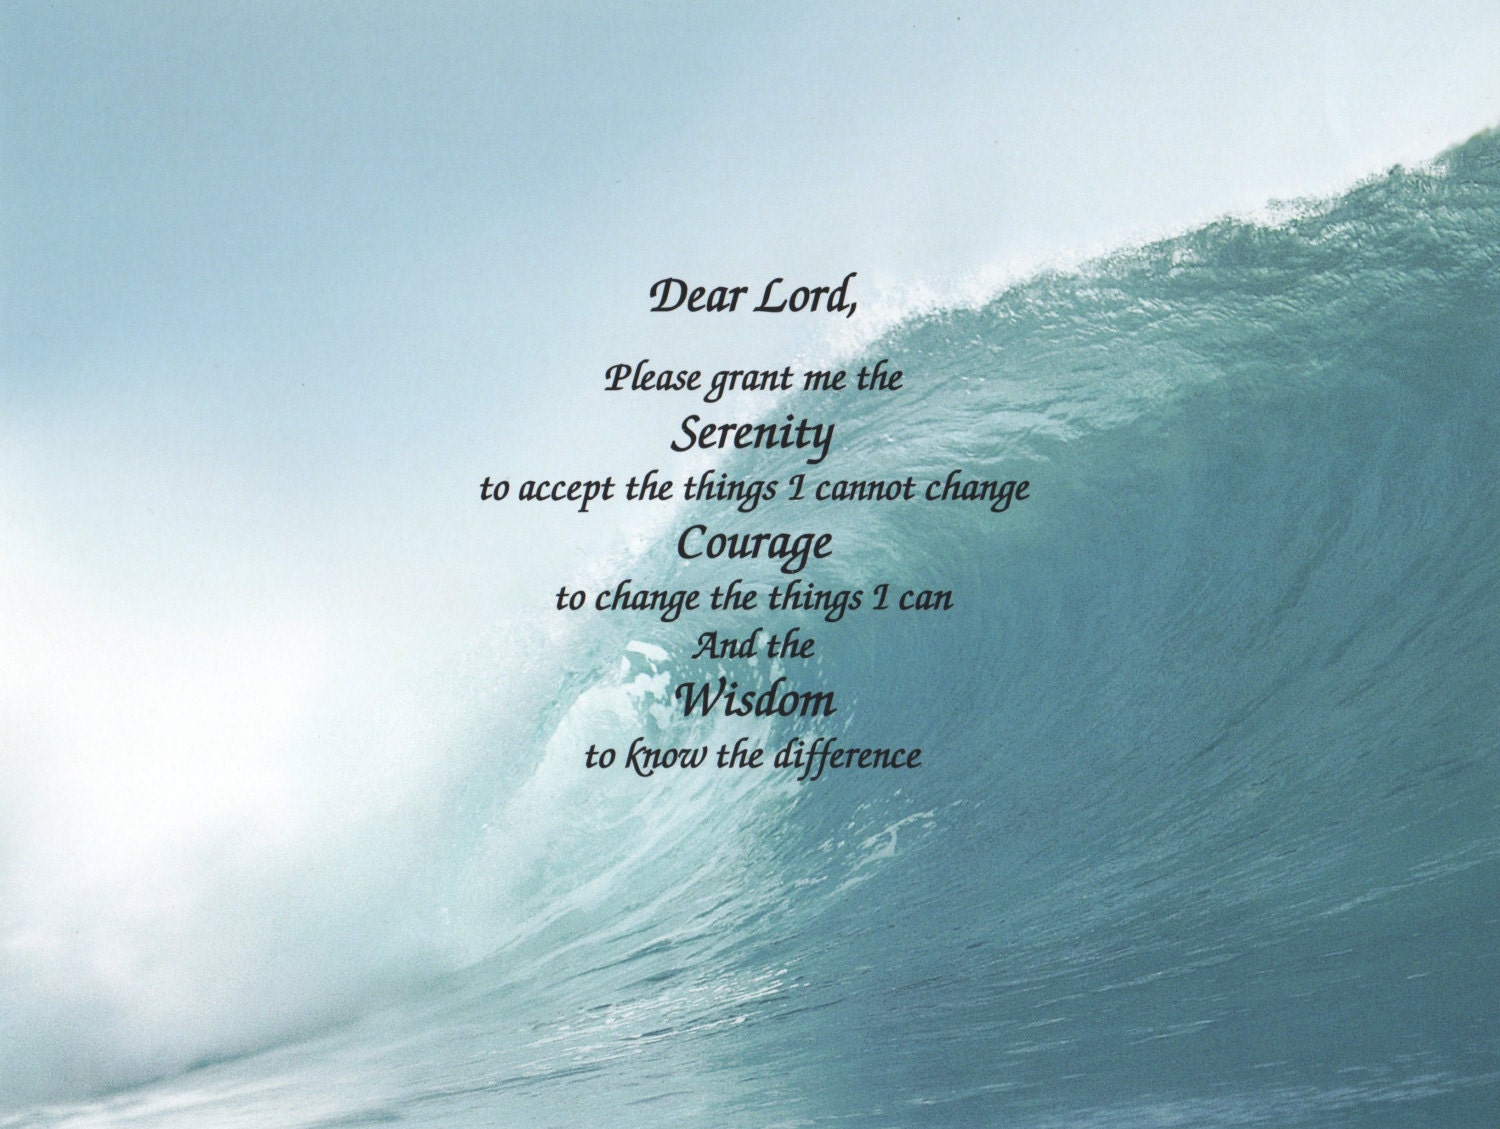 Dear Lord,
Please grant me the
Serenity
to accept the things I cannot change
Courage
to change the things I can
And the
Wisdom
to know the difference